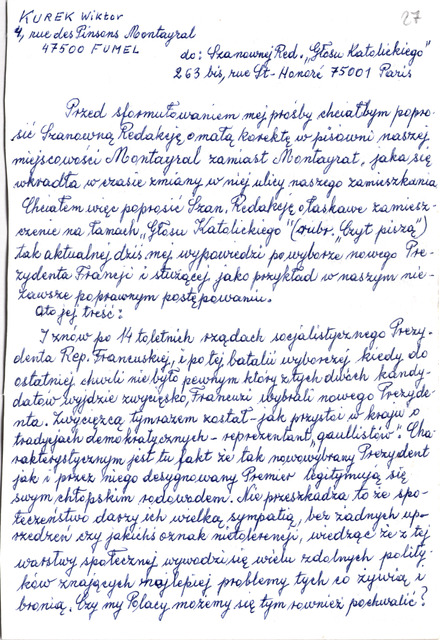 KUREK Wiktor
4, rue des Pinsons Montayral
47500 FUMEL
27
do: Szanownej Red. „Głosu Katolickiego"
263 bis, rue St-Honoré 75001 Paris
Przed sformułowaniem mej prośby chciałbym popro-
sić Szanowną Redakcję o małą korektę w pisowni naszej
miejscowości Montayral zamiast Montayrat, jaka się
wkradła w czasie zmiany w niej ulicy naszego zamieszkania
Chciałem więc poprosić Szan. Redakcję o łaskawe zamiesz-
czenie na łamach „Głosu Katolickiego" (rubr. „Czyt piszą")
tak aktualnej dziś mej wypowiedzi po wyborze nowego Pre-
zydenta Francji i służącej jako przykład w naszym nie-
zawsze poprawnym postępowaniu.
Oto jej treść:
I znów po 14 toletnich rządach socjalistycznego Prezy-
denta Rep. Francuskiej, i po tej batalii wyborczej kiedy do
ostatniej chwili nie było pewnym który z tych dwóch kandy-
datów wyjdzie zwycięsko, Francuzi wybrali nowego Prezyde-
nta. Zwycięzcą tymrazem został - jak przystoi w kraju o
tradycjach demokratycznych - reprezentant „gaullistów". Cha-
rakterystycznym jest tu fakt że tak nowowybrany Prezydent
jak i przez niego desygnowany Premier legitymują się
swym chłopskim rodowodem. Nie przeszkadza to że spo-
łeczeństwo darzy ich wielką sympatią, bez żadnych up-
rzedzeń czy jakichś oznak nietolerencji, wiedząc że z tej
warstwy społecznej wywodzi się wielu zdolnych polity-
ków znających najlepiej problemy tych co żywią i
bronią. Czy my Polacy możemy się tym rownież pochwalić?